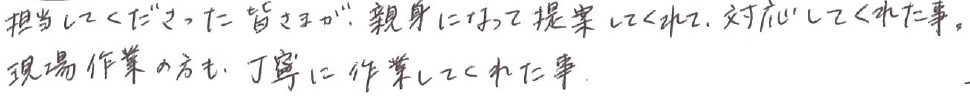 担当してくださった皆さまが、親身になって提案してくれて、対応してくれた事。
現場作業の方も、丁寧に作業してくれた事.